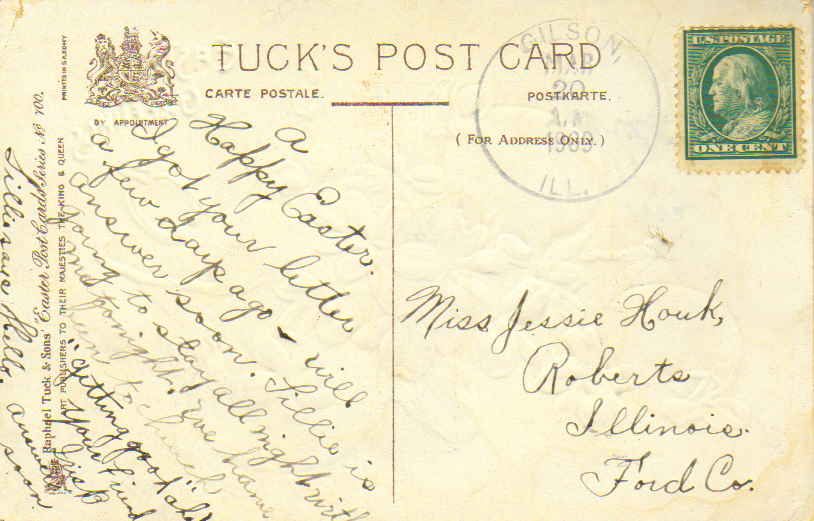 TUCK'S POST CARD
CARTE POSTALE.
POSTKARTE.
BY APPOINTMENT
(FOR ADDRESS ONLY.)
PRINTED IN SAXONY
Raphael Tuck & Sons' Easter Post Cards Series No 700.
ART PUBLISHERS TO THEIR MAJESTIES THE KING & QUEEN
GILSON,
MAR
20
1909
ILL.
U.S. POSTAGE
ONE CENT
A
Happy Easter.
I got your letter
a few days ago - will
answer soon. Lillie is
going to stay all night with
me tonight. We have
been to church
"getting good"
Your friend
Lillie says Hello. answer
soon
Miss Jessie Houk,
Roberts
Illinois.
Ford Co.